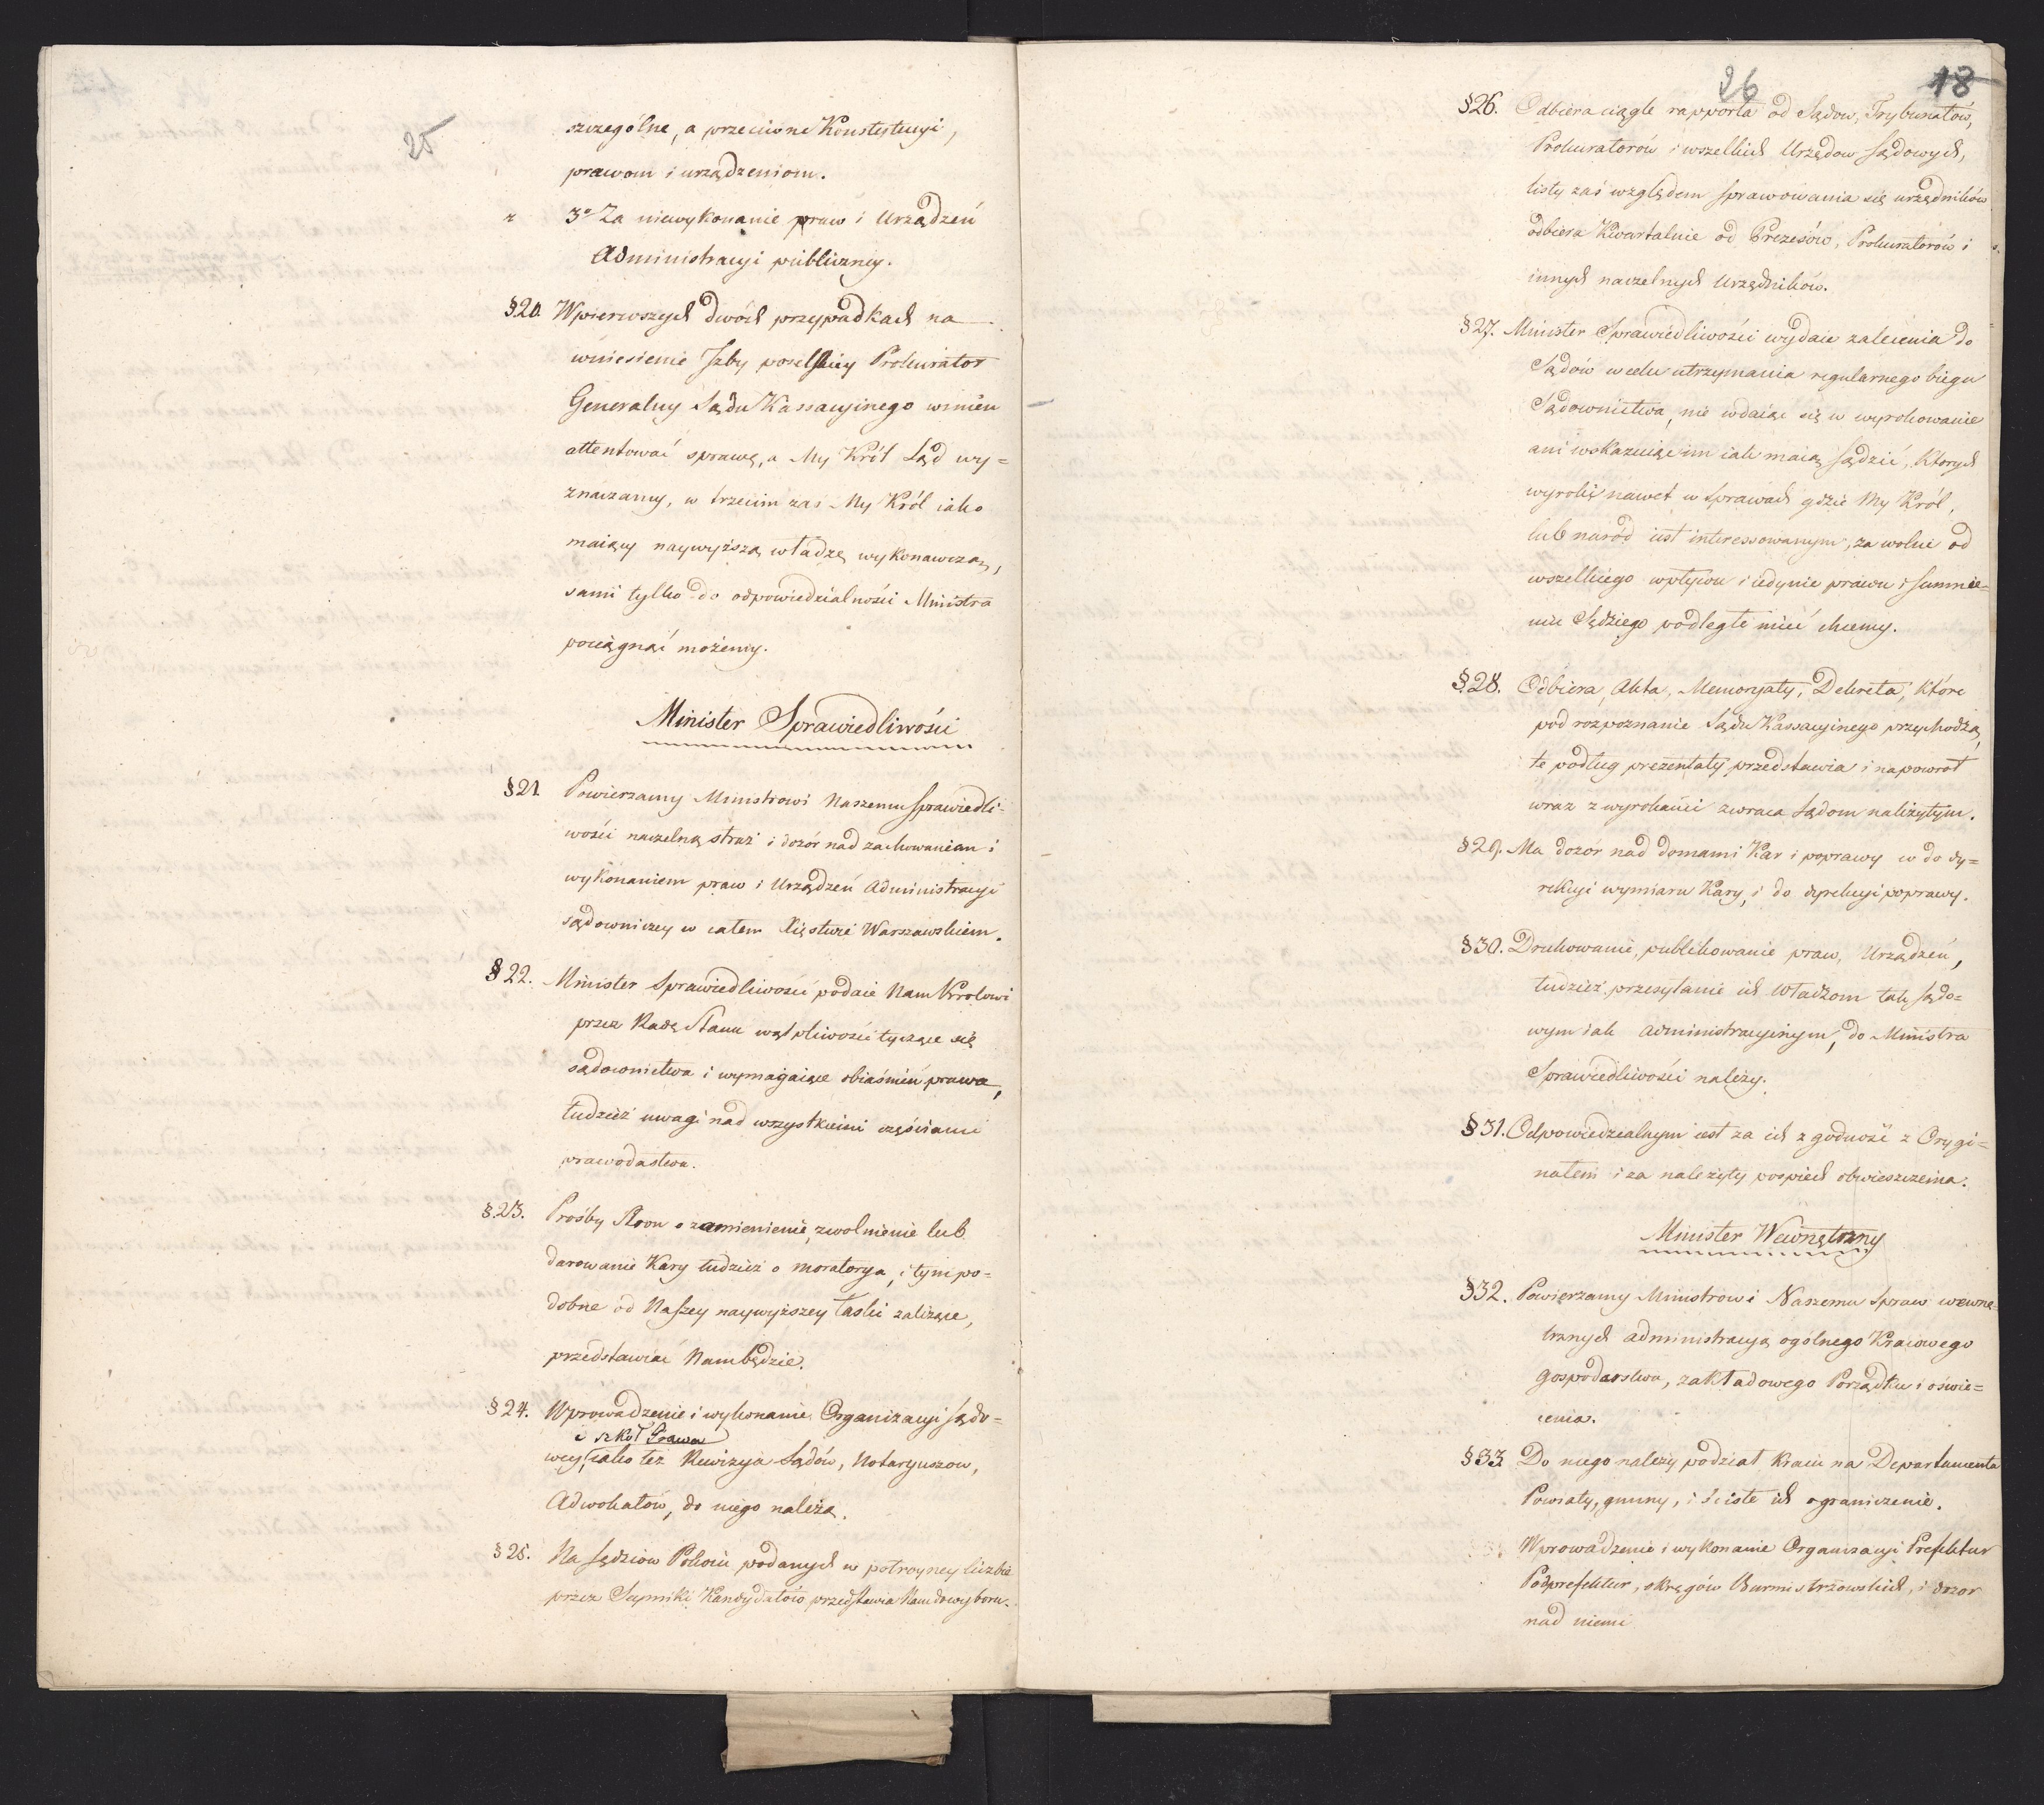 25
szczególne, a przeciwne Konstytucyi,
prawom i urządzeniom.
3º Za niewykonanie praw i Urządzeń
Administracyi publiczney.
§20. W pierwszych dwóch przypadkach na
wniesienie Izby poselskiey Prokurator
Generalny Sądu Kassacyinego winien
attentować sprawę, a My Król Sąd wy=
znaczamy, w trzecim zaś My Król iako
maiący naywyższą władzę wykonawczą,
sami tylko do odpowiedzialności Ministra
pociągnąć możemy.
Minister Sprawiedliwości
§21. Powierzamy Ministrowi Naszemu Sprawiedli=
wości naczelną straż i dozór nad zachowaniem i
wykonaniem praw i Urządzeń Administracyi
sądowniczey w całem Xięstwie Warszawskiem.
§22. Minister Sprawiedliwości podaie Nam Królowi
przez Radę Stanu wątpliwości tyczące się
sądownictwa i wymagaiące obiaśnień prawa,
tudzież uwagi nad wszystkiemi częściami
prawodastwa.
§.23. Prośby Stron o zamienienie, zwolnienie lub
darowanie Kary tudzież o moratorya, i tym po=
dobne od Naszey naywyższey łaski zależące,
przedstawiać Nam będzie.
§24. Wprowadzenie i wykonanie Organizacyi sądo=
i szkół Prawa
wey, iako też Rewizya Sądów, Notaryuszow,
Adwokatów, do niego należą.
§25. Na sędziow Pokoiu podanych w potroyney liczbie
przez Seymiki Kandydatów przedstawia Nam do wyboru.
26
18
§26. Odbiera ciągle rapporta od Sądow, Trybunałów,
Prokuratorów i wszelkich Urzędow Sądowych,
listy zaś względem sprawowania się urzędników
odbiera Kwartalnie od Prezesów, Prokuratorów i
innych naczelnych Urzędników.
§27. Minister Sprawiedliwości wydaie zalecenia do
Sądów w celu utrzymania regularnego biegu
Sądownictwa, nie wdaiąc się w wyrokowanie
ani wskazuiąc im iak maią sądzić, których
wyroki nawet w sprawach gdzie My Król,
lub naród iest interessowanym, za wolne od
wszelkiego wpływu i iedynie prawu i sumnie=
niu Sędziego podległe mieć chcemy.
§28. Odbiera Akta, Memoryały, Dekreta, które
pod rozpoznanie Sądu Kassacyinego przychodzą,
te podług prezentaty przedstawia i napowrót
wraz z wyrokami zwraca Sądom należytym.
§29. Ma dozór nad domami Kar i poprawy w do dy=
rekcyi wymiaru Kary, i do dyrekcyi poprawy.
§30. Drukowanie, publikowanie praw, Urządzeń,
tudzież przesyłanie ich Władzom tak sądo=
wym iak administracyinym, do Ministra
Sprawiedliwości należy.
§31. Odpowiedzialnym iest za ich zgodność z Orygi=
nałem i za należyty pospiech obwieszczenia.
Minister Wewnętrzny
§32. Powierzamy Ministrowi Naszemu Spraw wewnę=
trznych administracyą ogolnego Kraiowego
gospodarstwa, zakładowego Porządku i oświe=
cenia.
§33. Do niego należy podział Kraiu na Departamenta
Powiaty, gminy, i ścisłe ich ograniczenie.
Wprowadzenie i wykonanie Organizacyi Prefektur
Podprefektur, okręgów Burmistrzowskich, i dozor
nad niemi